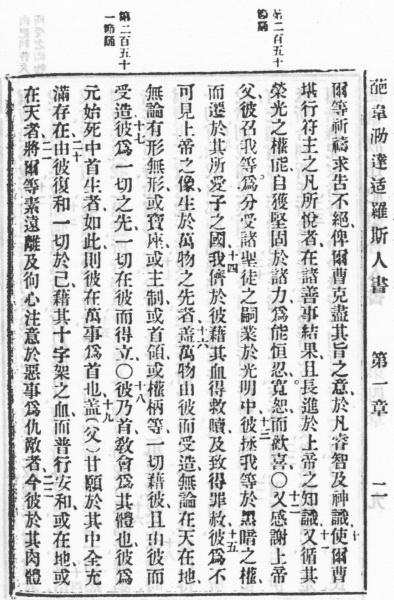 葩韋泐達适羅斯人書　第一章　二
第二百五十
節誦
第二百五十
一節誦
爾等祈禱求告不絕俾爾曹克盡其旨之意於凡睿智及神識使爾曹
堪行符主之凡所悅者在諸善事結果且長進於上帝之知識又循其
榮光之權能自獲堅固於諸力爲能恒忍寬恕而歡喜○又感謝上帝
父彼召我等爲分受諸聖徒之嗣業於光明中彼拯我等於黑暗之權
而遷於其所愛子之國我儕於彼藉其血得救贖及致得罪赦彼爲不
可見上帝之像生於萬物之先者蓋萬物由彼而受造無論在天在地
無論有形無形或寶座或主制或首領或權柄等一切藉彼且由彼而
受造彼爲一切之先一切在彼而得立○彼乃首教會爲其體也彼爲
元始死中首生者如此則彼在萬事爲首也蓋（父）甘願於其中全充
滿存在由彼復和一切於己藉其十字架之血而普行安和或在地或
在天者將爾等素遠離及向心注意於惡事爲仇敵者今彼於其肉體
十一
十二
十三
十四
十五
十六
十七
十八
十九
二十
二一
二二